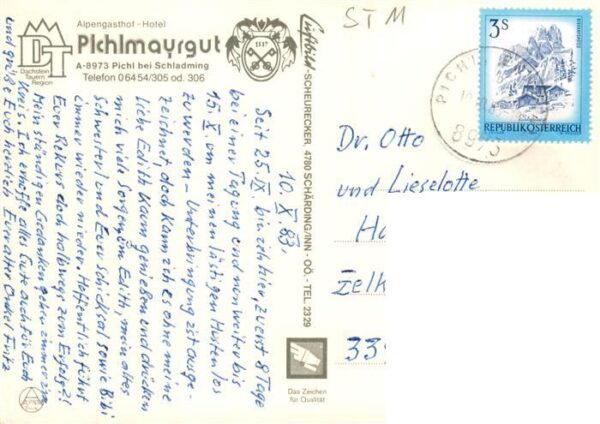 Alpengasthof - Hotel
Pichlmayrgut
A-8973 Pichl bei Schladming
Telefon 06454/305 od. 306
DT
Dachstein
Tauern
Region
Luftbild-SCHEURECKER, 4780 SCHÄRDING/INN - OÖ. - TEL. 2329
STM
3S
REPUBLIK ÖSTERREICH
PICHL
8973
10. X. 83.
Seit 25. IX. bin ich hier, zuerst 8 Tage
bei einer Tagung und nun weiter bis
15. X. um meinen lästigen Husten los
zu werden - Unterbringung ist ausge-
zeichnet, doch kann ich es ohne meine
liebe Edith kaum genießen und drücken
mich viele Sorgen um Edith, mein altes
Schwesterl und Euer Schicksal sowie Bibi
immer wieder nieder. Hoffentlich führt
Euer doch halbwegs zum Erfolg?!
Mein ständigen Gedanken gehen immer im
Kreis. Ich erhoffe alles Gute auch für Euch
und grüße Euch herzlich Euer alter Onkel Fritz
Dr. Otto
und Lieselotte
Ha
Zelk
33
Das Zeichen
für Qualität